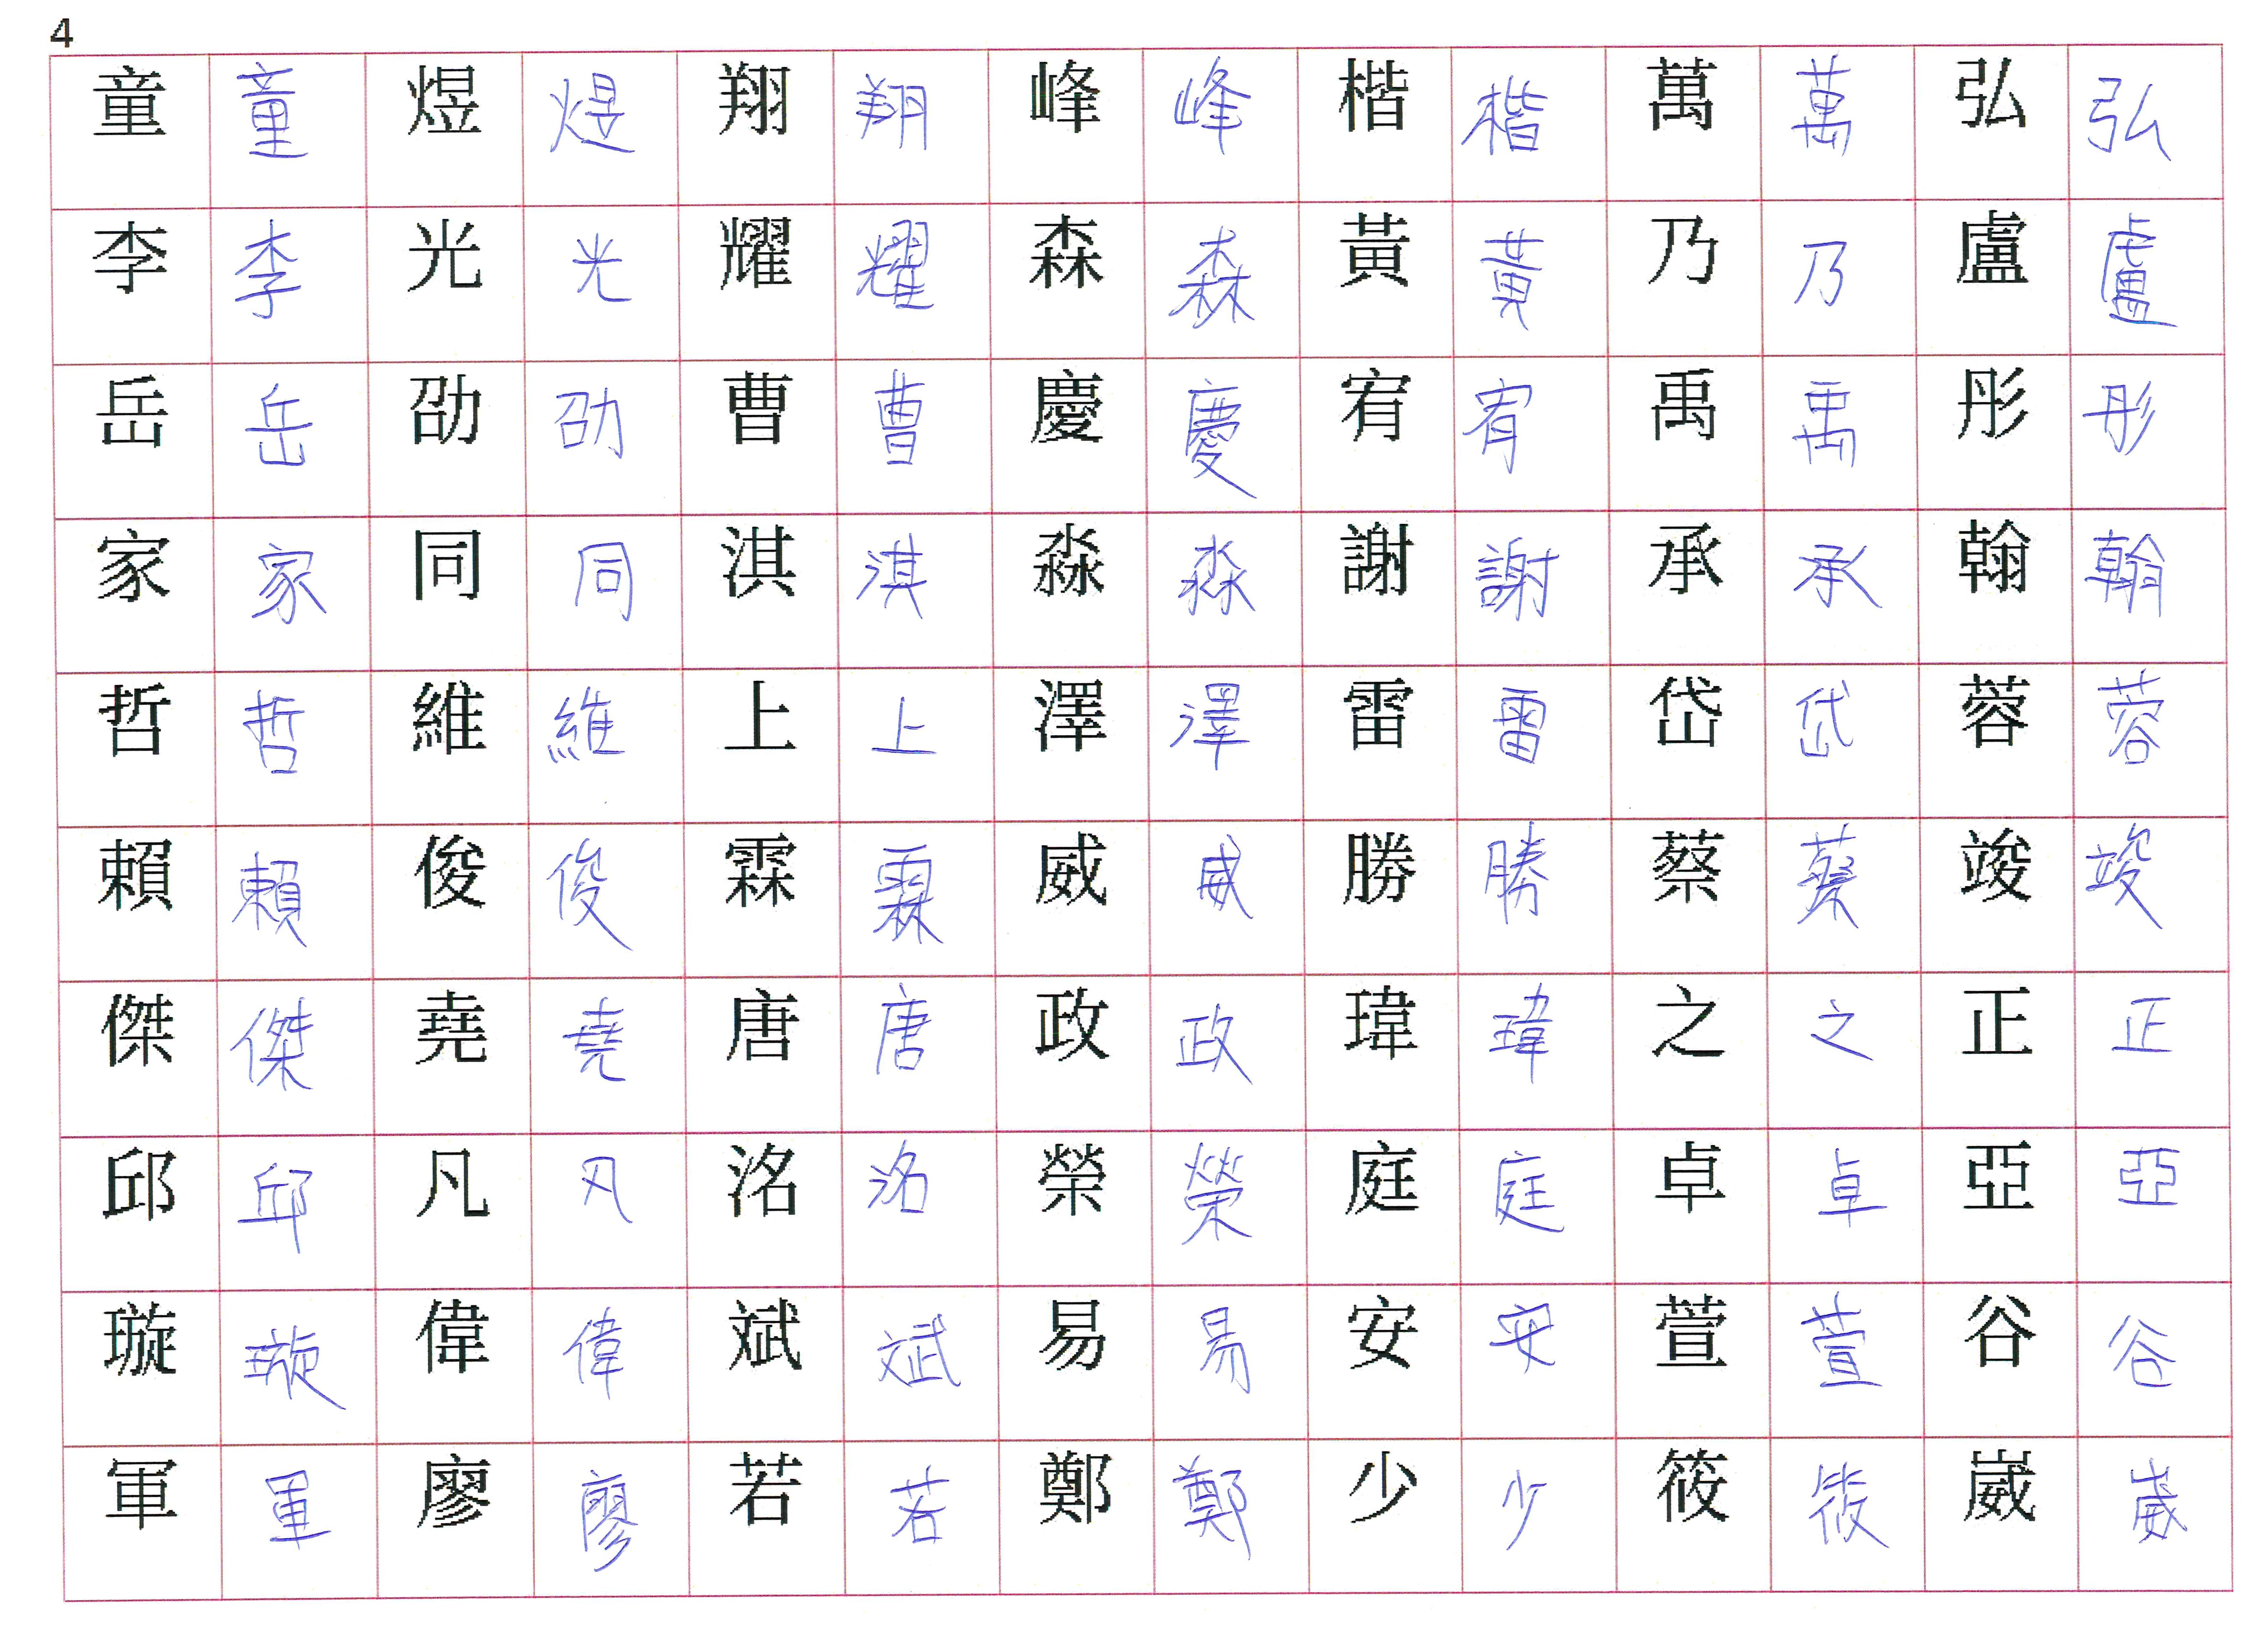 4
童 童 煜 煜 翔 翔 峰 峰 楷 楷 萬 萬 弘 弘
李 李 光 光 耀 耀 森 森 黃 黃 乃 乃 盧 盧
岳 岳 劭 劭 曹 曹 慶 慶 宥 宥 禹 禹 彤 彤
家 家 同 同 淇 淇 淼 淼 謝 謝 承 承 翰 翰
哲 哲 維 維 上 上 澤 澤 雷 雷 岱 岱 蓉 蓉
賴 賴 俊 俊 霖 霖 威 威 勝 勝 蔡 蔡 竣 竣
傑 傑 堯 堯 唐 唐 政 政 瑋 瑋 之 之 正 正
邱 邱 凡 凡 洺 洺 榮 榮 庭 庭 卓 卓 亞 亞
璇 璇 偉 偉 斌 斌 易 易 安 安 萱 萱 谷 谷
軍 軍 廖 廖 若 若 鄭 鄭 少 少 筱 筱 崴 崴